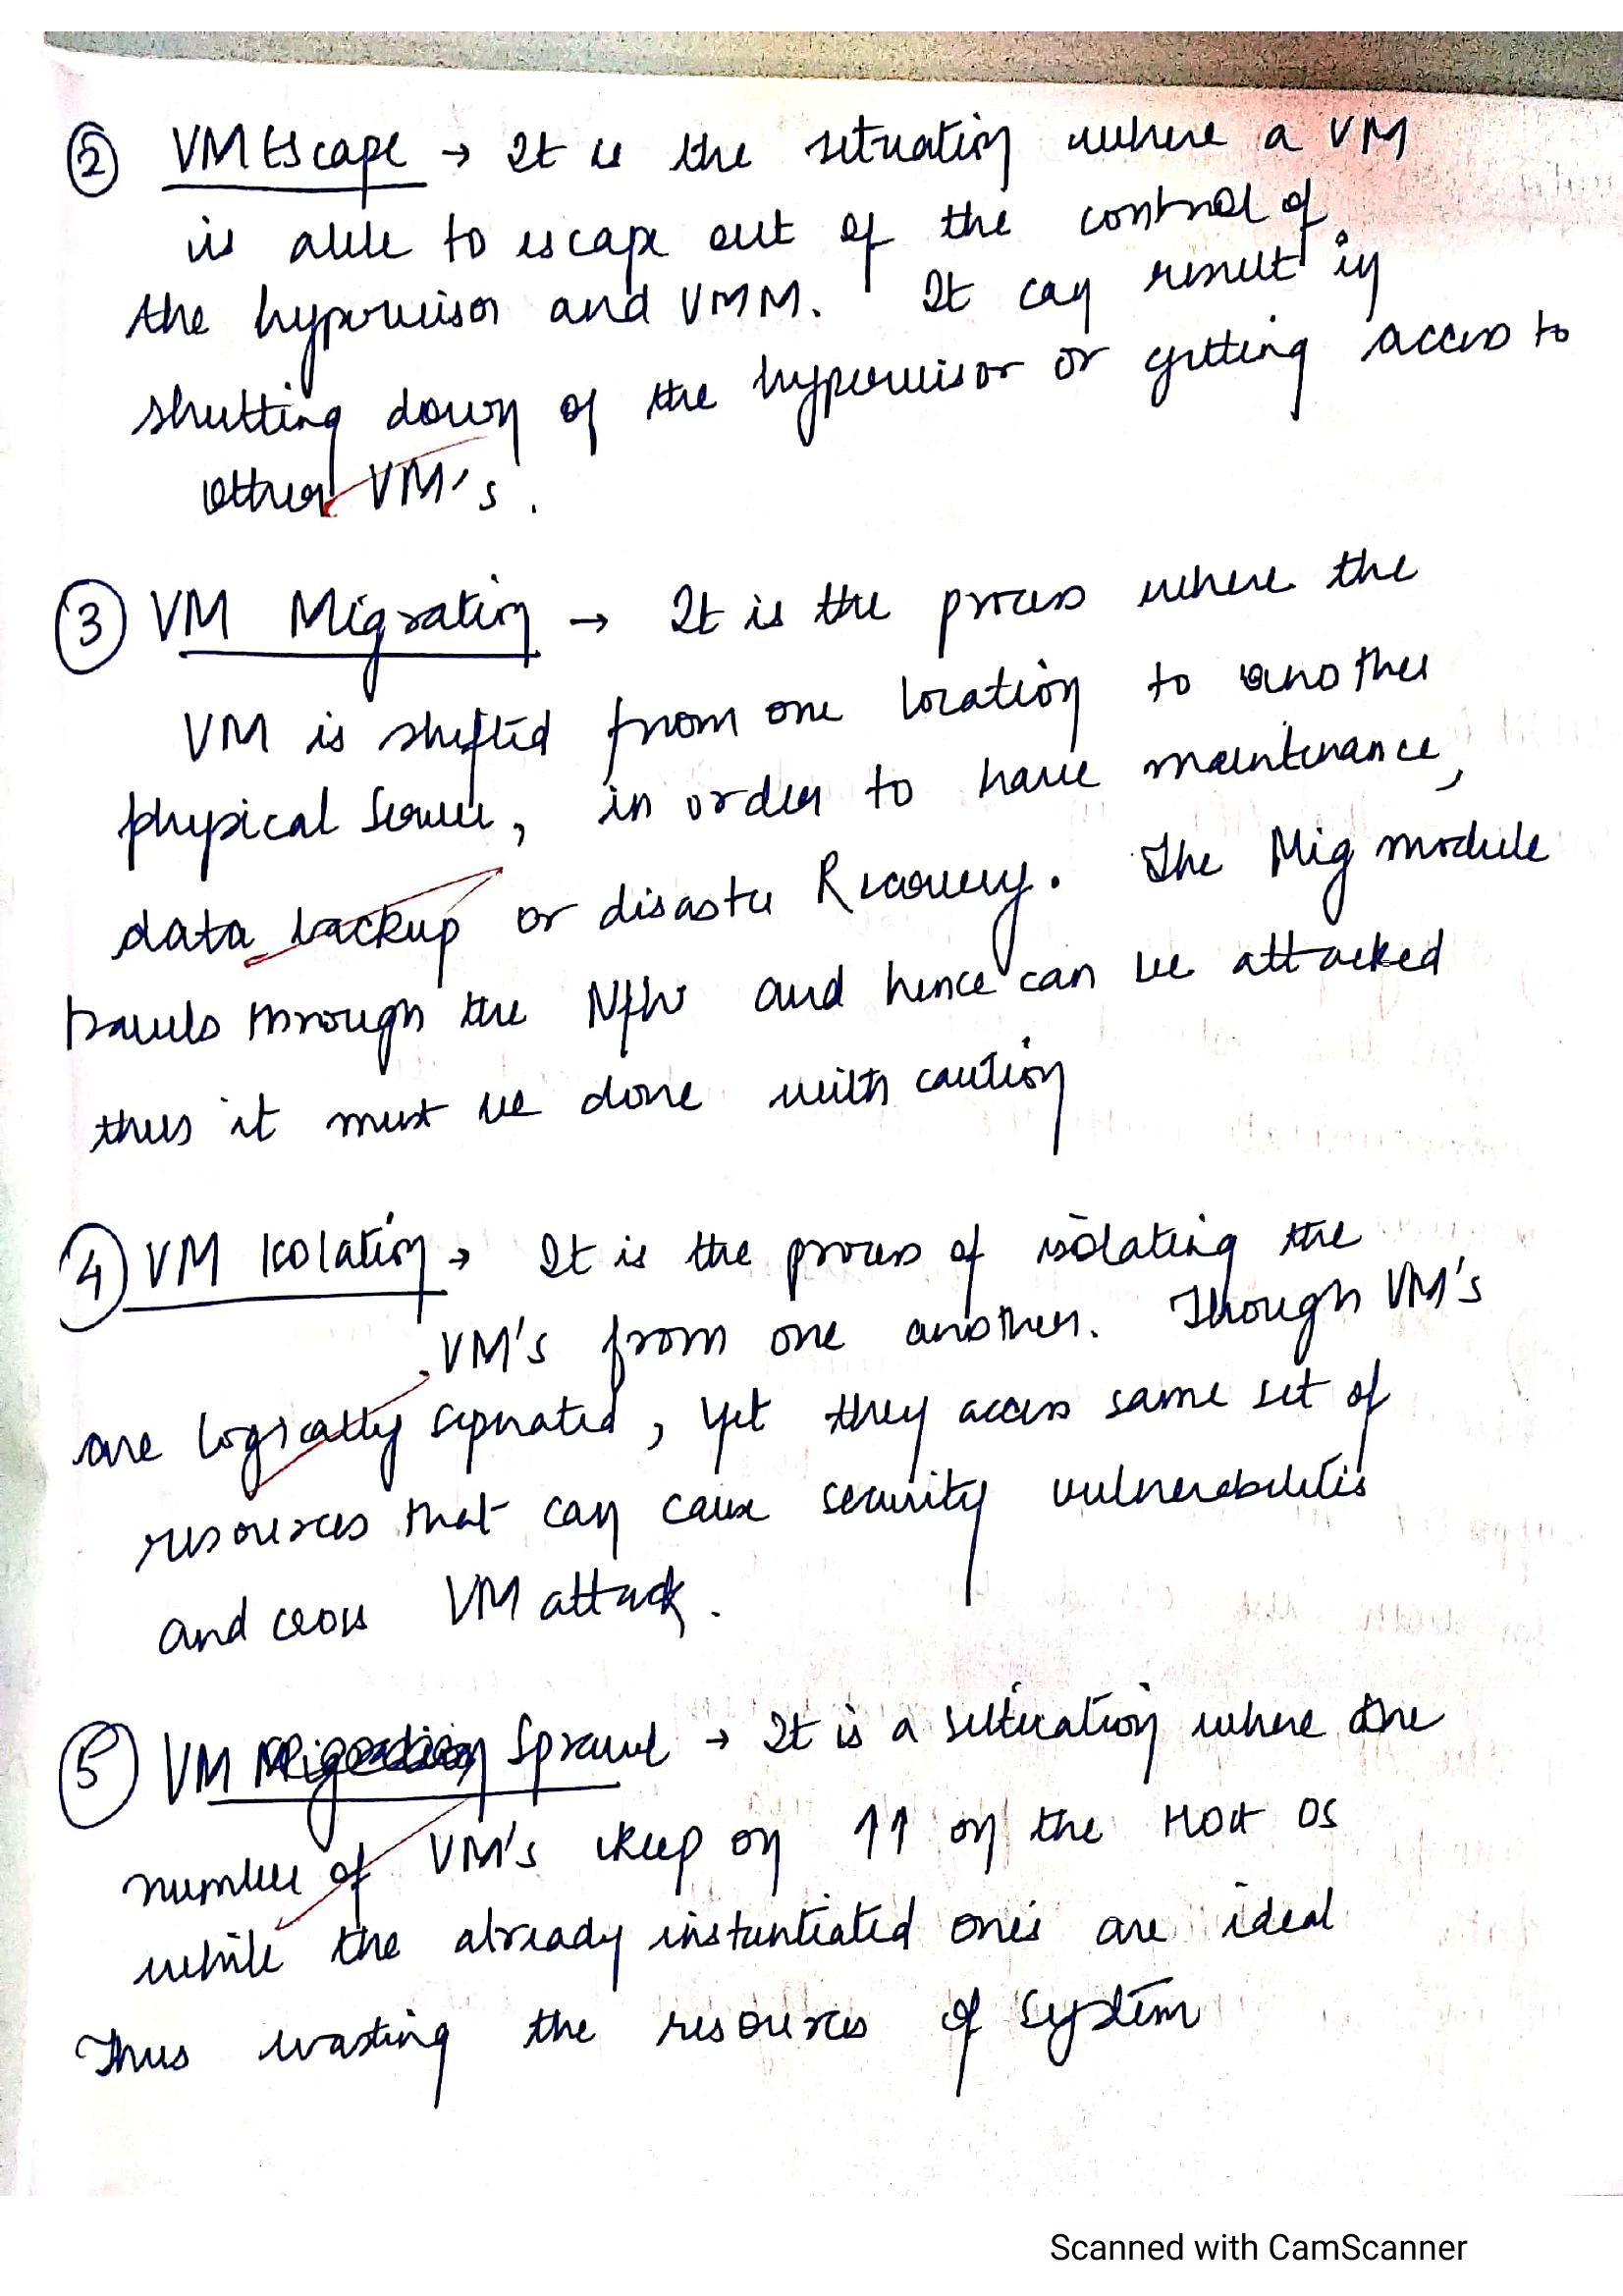 ② VM Escape → It is the situation where a VM
is able to escape out of the control of
the hypervisor and VMM. It can result in
shutting down of the hypervisor or getting access to
other VM's.
③ VM Migration → It is the process where the
VM is shifted from one location to another
physical server, in order to have maintenance,
data backup or disaster Recovery. The Mig module
travels through the N/w and hence can be attacked
thus it must be done with caution
④ VM Isolation → It is the process of isolating the
VM's from one another. Though VM's
are logically seperated, yet they access same set of
resources that can cause security vulnerabilities
and cross VM attack.
⑤ VM Sprawl → It is a situation where the
number of VM's keep on ↑↑ on the Host OS
while the already instantiated ones are ideal
Thus wasting the resources of system
Scanned with CamScanner